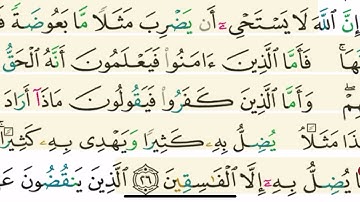 إِنَّ اللَّهَ لَا يَسْتَحْيِۦٓ أَن يَضْرِبَ مَثَلًا مَّا بَعُوضَةً
فَأَمَّا الَّذِينَ ءَامَنُوا۟ فَيَعْلَمُونَ أَنَّهُ الْحَقُّ
وَأَمَّا الَّذِينَ كَفَرُوا۟ فَيَقُولُونَ مَاذَآ أَرَادَ
مَثَلًا ۘ يُضِلُّ بِهِۦ كَثِيرًا وَيَهْدِى بِهِۦ كَثِيرًا ۚ
يُضِلُّ بِهِۦٓ إِلَّا الْفَـٰسِقِينَ ٢٦ الَّذِينَ يَنقُضُونَ